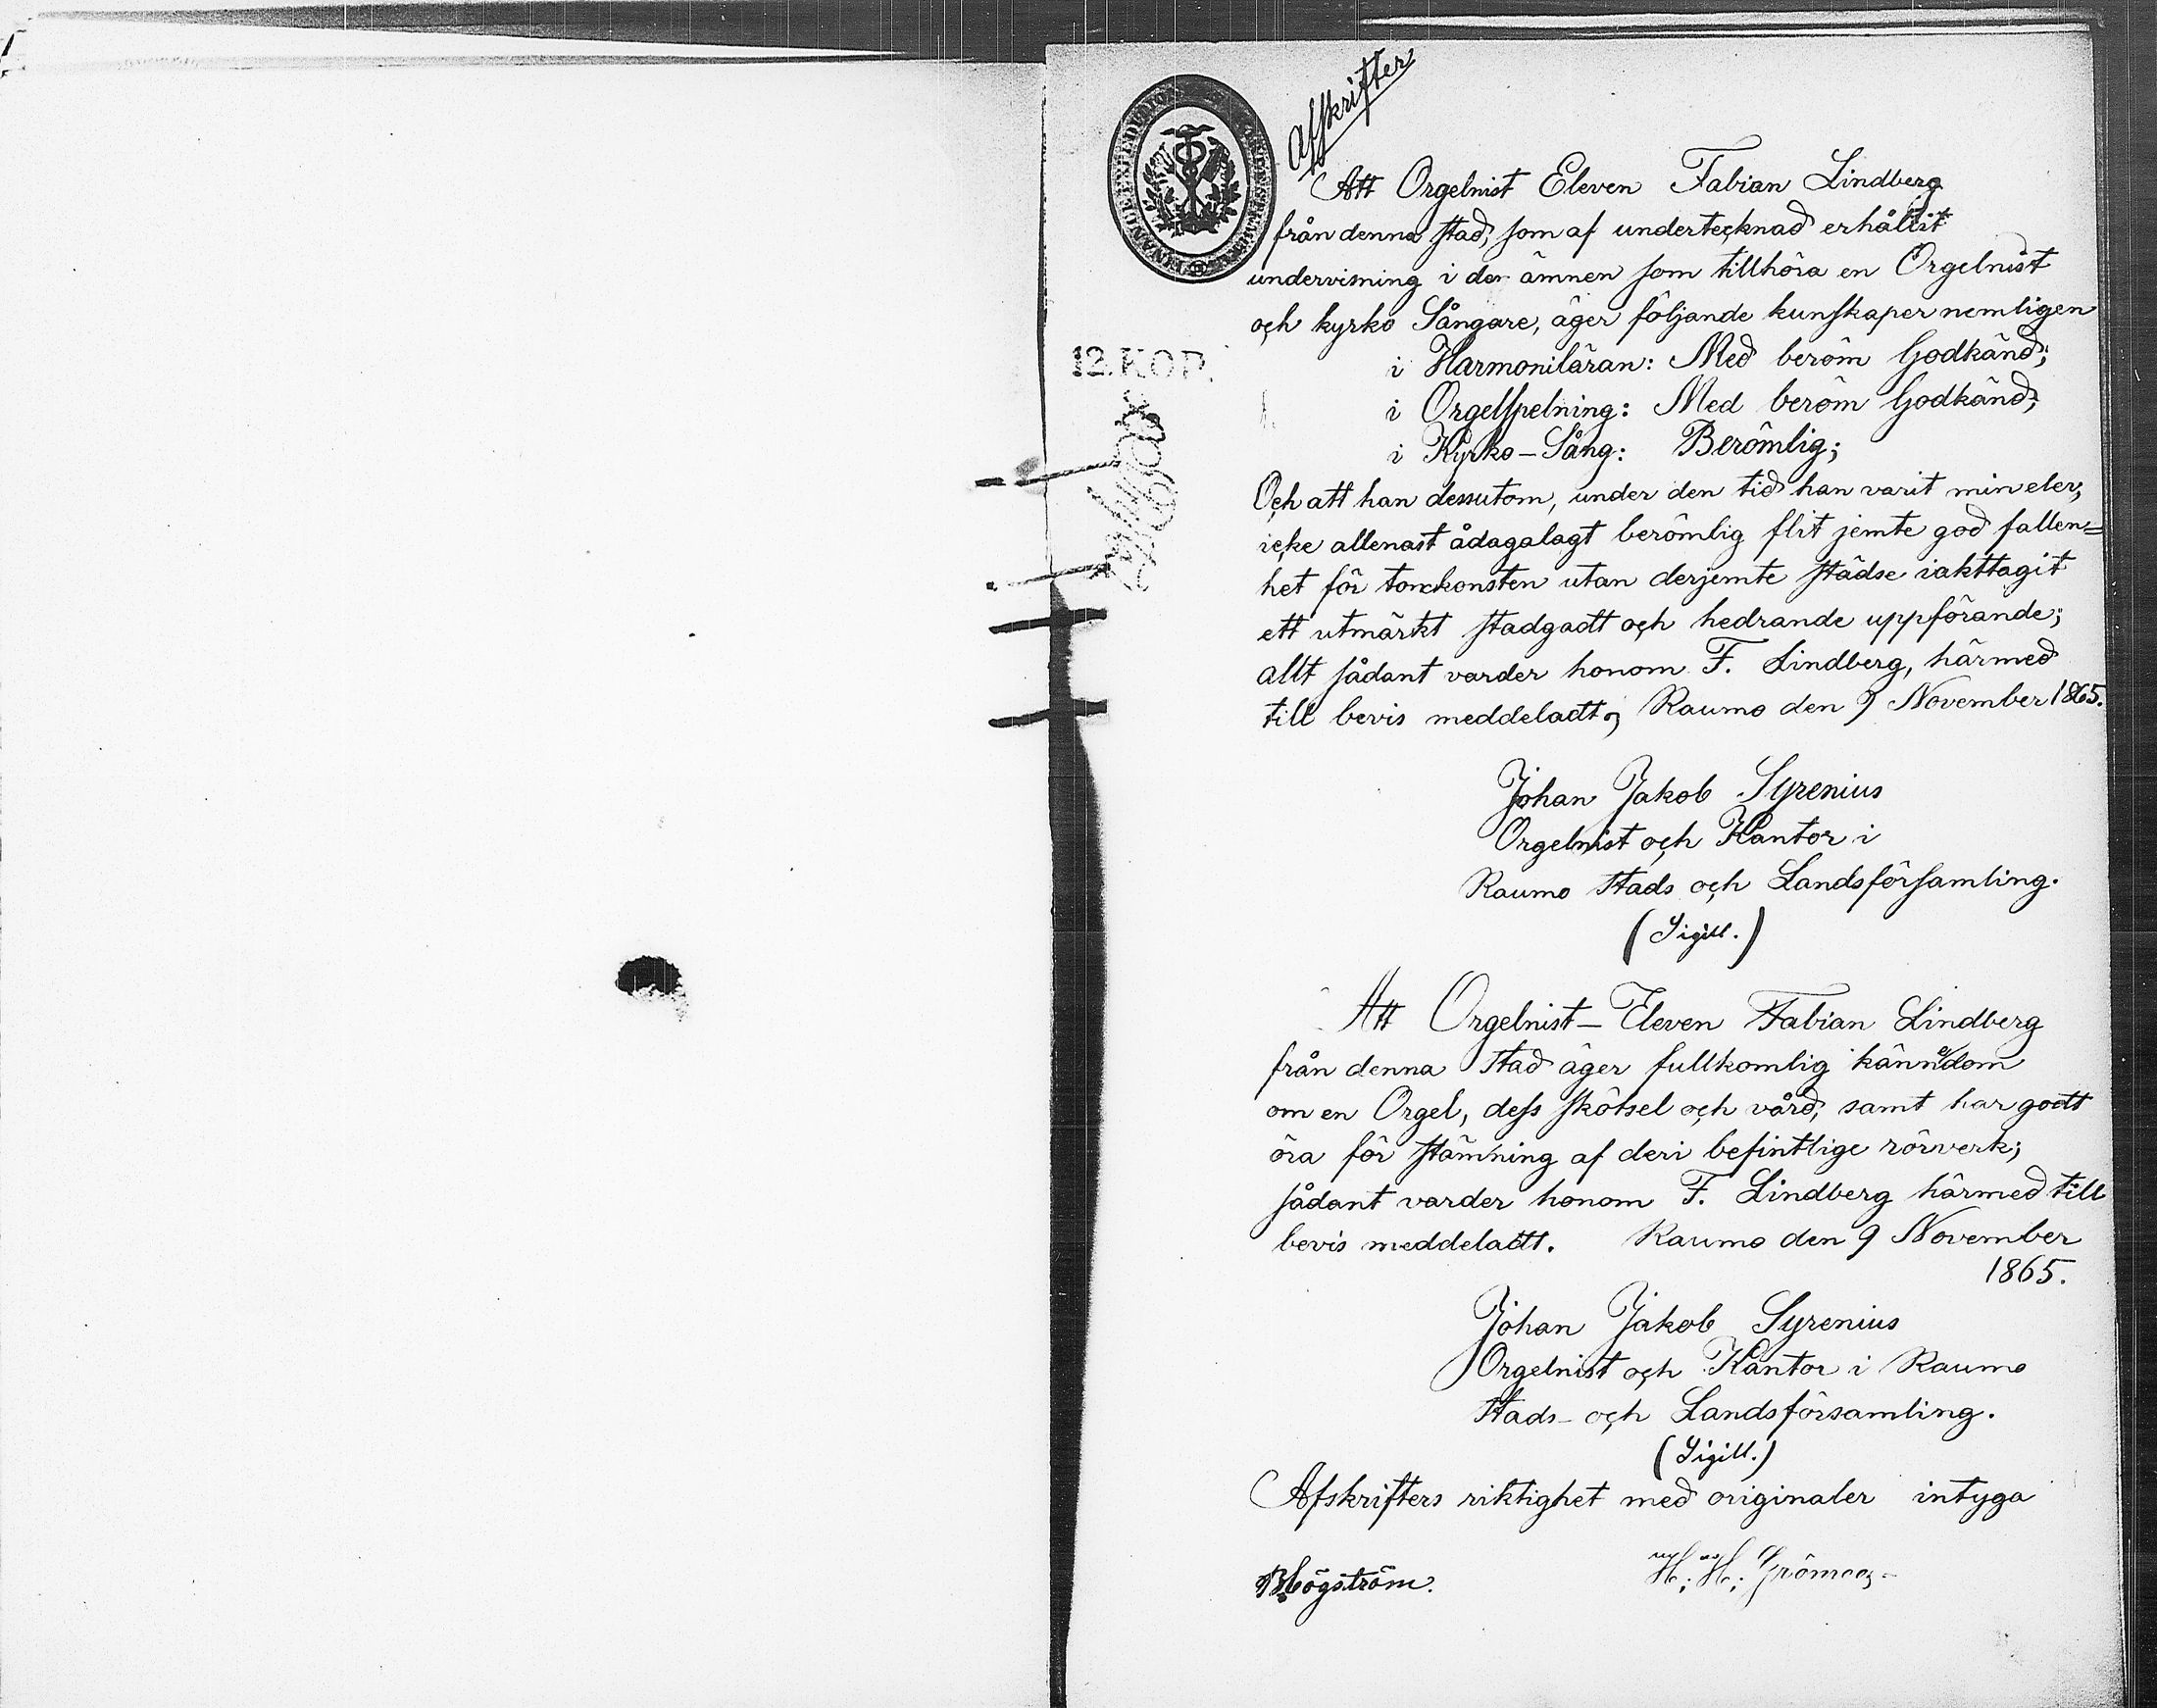 Afskrifter
Att Orgelnist Eleven Fabian Lindberg
från denna stad, som af undertecknad erhållit
undervisning i de ämnen som tillhöra en Orgelnist
och kyrko Sångare, äger följande kunskaper nemligen
12. KOP.
i Harmoniläran: Med beröm Godkänd;
i Orgelspelning: Med beröm Godkänd;
i Kyrko-Sång: Berömlig;
Och att han dessutom, under den tid han varit min elev,
icke allenast ådagalagt berömlig flit jemte god fallen=
het för tonekonsten utan derjemte städse iakttagit
ett utmärkt stadgadt och hedrande uppförande;
allt sådant varder honom F. Lindberg, härmed
till bevis meddeladt, Raumo den 9 November 1865.
Johan Jakob Syrenius
Orgelnist och Kantor i
Raumo Stads och Landsförsamling.
(Sigill.)
Att Orgelnist-Eleven Fabian Lindberg
från denna Stad äger fullkomlig kännedom
om en Orgel, dess skötsel och vård, samt har godt
öra för stämning af deri befintlige rörverk;
sådant varder honom F. Lindberg härmed till
bevis meddeladt. Raumo den 9 November
1865.
Johan Jakob Syrenius
Orgelnist och Kantor i Raumo
Stads- och Landsförsamling.
(Sigill.)
Afskrifters riktighet med originaler intyga
Högström.